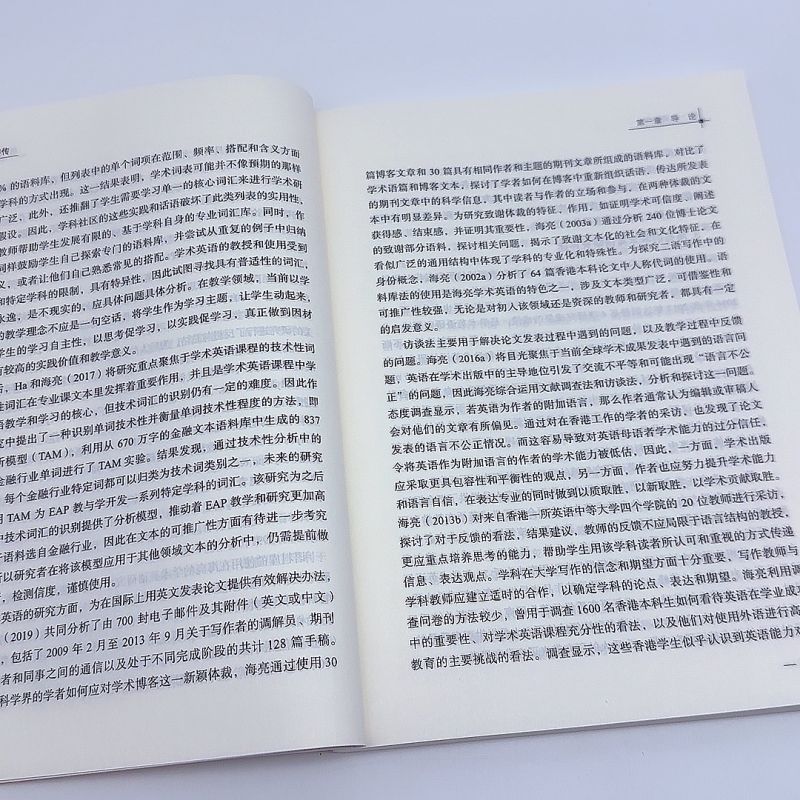 传
% 的语料库，但列表中的单个词项在范围、频率、搭配和含义方面
学科的方式出现。这一结果表明，学术词表可能并不像预期的那样
广泛，此外，还推翻了学生需要学习单一的核心词汇来进行学术研
假设。因此，学科社区的这些实践和话语破坏了此类列表的实用性，
教师帮助学生发展有限的、基于学科自身的专业词汇库。同时，作
同样鼓励学生自己探索专门的语料库，并尝试从重复的例子中归纳
义，或者让他们自己熟悉常见的搭配。学术英语的教授和使用受到
和特定学科的限制，具有特异性，因此试图寻找具有普适性的词汇，
永逸，是不现实的，应具体问题具体分析。在教学领域，当前以学
的教学理念不应是一句空话，将学生作为学习主题，让学生动起来，
学生的学习自主性，以思考促学习，以实践促学习，真正做到因材
有较高的实践价值和教学意义。
后，Ha和海亮（2017）将研究重点聚焦于学术英语课程的技术性词
性词汇在专业课文本里发挥着重要作用，并且是学术英语课程中学
教学和学习的核心，但技术词汇的识别仍有一定的难度。因此作
究中提出了一种识别单词技术性并衡量单词技术性程度的方法，即
析模型（TAM），利用从 670 万字的金融文本语料库中生成的 837
金融行业单词进行了 TAM 实验。结果发现，通过技术性分析中的
，每个金融行业特定词都可以归类为技术词类别之一，未来的研究
用 TAM 为 EAP 教与学开发一系列特定学科的词汇。该研究为之后
中技术词汇的识别提供了分析模型，推动着 EAP 教学和研究更加高
于语料选自金融行业，因此在文本的可推广性方面有待进一步考究
所以研究者在将该模型应用于其他领域文本的分析中，仍需提前做
，检测信度，谨慎使用。
英语的研究方面，为在国际上用英文发表论文提供有效解决办法，
（2019）共同分析了由 700 封电子邮件及其附件（英文或中文）
，包括了 2009 年 2 月至 2013 年 9 月关于写作者的调解员、期刊
者和同事之间的通信以及处于不同完成阶段的共计 128 篇手稿。
科学界的学者如何应对学术博客这一新颖体裁，海亮通过使用 30
第一章 导 论
篇博客文章和 30 篇具有相同作者和主题的期刊文章所组成的语料库，对比了
学术语篇和博客文本，探讨了学者如何在博客中重新组织话语，传达所发表
的期刊文章中的科学信息，其中读者与作者的立场和参与，在两种体裁的文
本中有明显差异。为研究致谢体裁的特征、作用，如证明学术可信度、阐述
获得感、结束感，并证明其重要性，海亮（2003a）通过分析 240 位博士论文
的致谢部分语料，探讨相关问题，揭示了致谢文本化的社会和文化特征，在
看似广泛的通用结构中体现了学科的专业化和特殊性。为探究二语写作中的
身份概念，海亮（2002a）分析了 64 篇香港本科论文中人称代词的使用。语
料库法的使用是海亮学术英语的特色之一，涉及文本类型广泛，可借鉴性和
可推广性较强，无论是对初入该领域还是资深的教师和研究者，都具有一定
的启发意义。
访谈法主要用于解决论文发表过程中遇到的问题，以及教学过程中反馈
的问题。海亮（2016a）将目光聚焦于当前全球学术成果发表中遇到的语言问
题，英语在学术出版中的主导地位引发了交流不平等和可能出现“语言不公
正”的问题，因此海亮综合运用文献调查法和访谈法，分析和探讨这一问题。
态度调查显示，若英语为作者的附加语言，那么作者通常认为编辑或审稿人
会对他们的文章有所偏见。通过对在香港工作的学者的采访，也发现了论文
发表的语言不公正情况。而这容易导致对英语母语者学术能力的过分信任，
令将英语作为附加语言的作者的学术能力被低估，因此，一方面，学术出版
应采取更具包容性和平衡性的观点，另一方面，作者也应努力提升学术能力
和语言自信，在表达专业的同时做到以质取胜，以新取胜，以学术贡献取胜。
海亮（2013b）对来自香港一所英语中等大学四个学院的 20 位教师进行采访，
探讨了对于反馈的看法，结果建议，教师的反馈不应局限于语言结构的教授，
更应重点培养思考的能力，帮助学生用该学科读者所认可和重视的方式传递
信息、表达观点。学科在大学写作的信念和期望方面十分重要，写作教师与
学科教师应建立适时的合作，以确定学科的论点、表达和期望。海亮利用调
查问卷的方法较少，曾用于调查 1600 名香港本科生如何看待英语在学业成
中的重要性、对学术英语课程充分性的看法、以及他们对使用外语进行高
教育的主要挑战的看法。调查显示，这些香港学生似乎认识到英语能力对